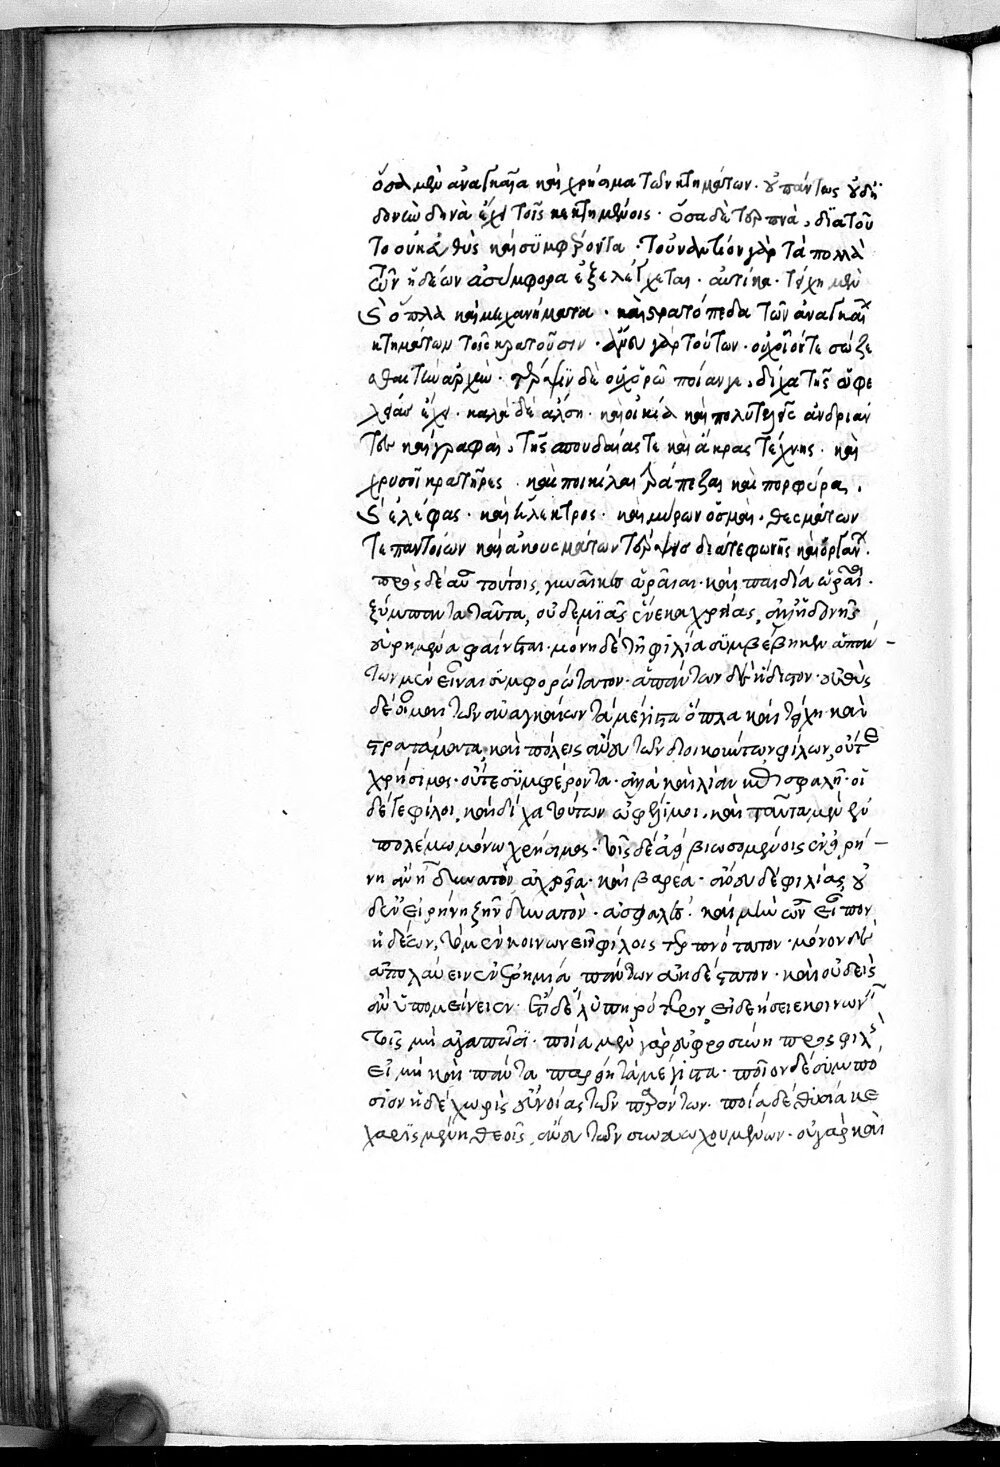 ὅσα μὲν ἀναγκαῖα καὶ χρήσιμα τῶν κτημάτων. οὐ πάντως ἡδ
δονὴν ἔχει τοῖς κεκτημένοις. ὅσα δὲ τερπνὰ, διὰ τοῦ
το οὐκ εὐθὺς καὶ συμφέροντα. τοὐναντίον γὰρ τὰ πολλὰ
τῶν ἡδέων ἀσύμφορα ἐξελέγχεται. αὐτίκα. τείχη μὲν
καὶ ὅπλα καὶ μηχανήματα. καὶ στρατόπεδα τῶν ἀναγκαίων
κτημάτων τοῖς κρατοῦσιν. ἄνευ γὰρ τούτων. οὐχ οἷόν τε σώζε
σθαι τὴν ἀρχήν. τέρψιν δὲ οὐχ ὁρῶ ποίαν γε, δίχα τῆς ὠφε
λείας ἔχει. καλὰ δὲ ἄλση. καὶ οἰκίαι καὶ πολυτελεῖς ἀνδριάν
τες καὶ γραφαὶ, τῆς σπουδαίας τε καὶ ἄκρας τέχνης. καὶ
χρυσοῖ κρατῆρες καὶ ποικίλαι τράπεζαι καὶ πορφύρα,
καὶ ἐλέφας. καὶ ἤλεκτρος. καὶ μύρων ὀσμαὶ. θεαμάτων
τε παντοίων καὶ ἀκουσμάτων τέρψις διά τε φωνῆς καὶ ὀργάνων.
πρὸς δὲ αὖ τούτοις, γυναῖκες ὡραῖαι. καὶ παιδία ὡραῖα.
ξύμπαντα ταῦτα, οὐδεμιᾶς ἕνεκα χρείας, ἀλλ' ἡδονῆς
εὑρημένα φαίνεται. μόνῃ δὲ τῇ φιλίᾳ συμβέβηκεν ἁπάν
των μὲν εἶναι συμφορώτατον. ἁπάντων δὲ ἥδιστον. εὐθὺς
δὲ οἶμαι τῶν ἀναγκαίων τὰ μέγιστα ὅπλα καὶ τείχη καὶ
στρατεύματα, καὶ πόλεις ἄνευ τῶν διοικούντων φίλων, οὔτε
χρήσιμα. οὔτε συμφέροντα. ἀλλὰ καὶ λίαν ἐπισφαλῆ. οἱ
δέ γε φίλοι, καὶ δίχα τούτων ὠφέλιμοι. καὶ ταῦτα μὲν ἐν
πολέμῳ μόνῳ χρήσιμα. τοῖς δὲ ἀεὶ βιωσομένοις ἐν εἰρή
νῃ ἂν ᾖ δυνατὸν ἀχρεῖα. καὶ βαρέα. ἄνευ δὲ φιλίας οὐ
δὲ ἐν εἰρήνῃ ζῆν δυνατὸν. ἀσφαλές. καὶ μὴν ὧν εἶπον
ἡδέων, τὸ μὲν κοινωνεῖν φίλοις τερπνότατον. μόνον δὲ
ἀπολαύειν ἐν ἐρημίᾳ πάντων ἀηδέστατον. καὶ οὐδεὶς
ἂν ὑπομείνειεν. ἔτι δὲ λυπηρότερον, εἰ δεήσειε κοινωνεῖν
τοῖς μὴ ἀγαπῶσι. ποία μὲν γὰρ εὐφροσύνη πρὸς φιλ
εἰ μὴ καὶ πάντα παρείη τὰ μέγιστα. ποῖον δὲ συμπό
σιον ἡδὺ χωρὶς εὐνοίας τῶν παρόντων. ποία δὲ θυσία κε
χαρισμένη θεοῖς, ἄνευ τῶν συνευωχουμένων. οὐ γὰρ καὶ